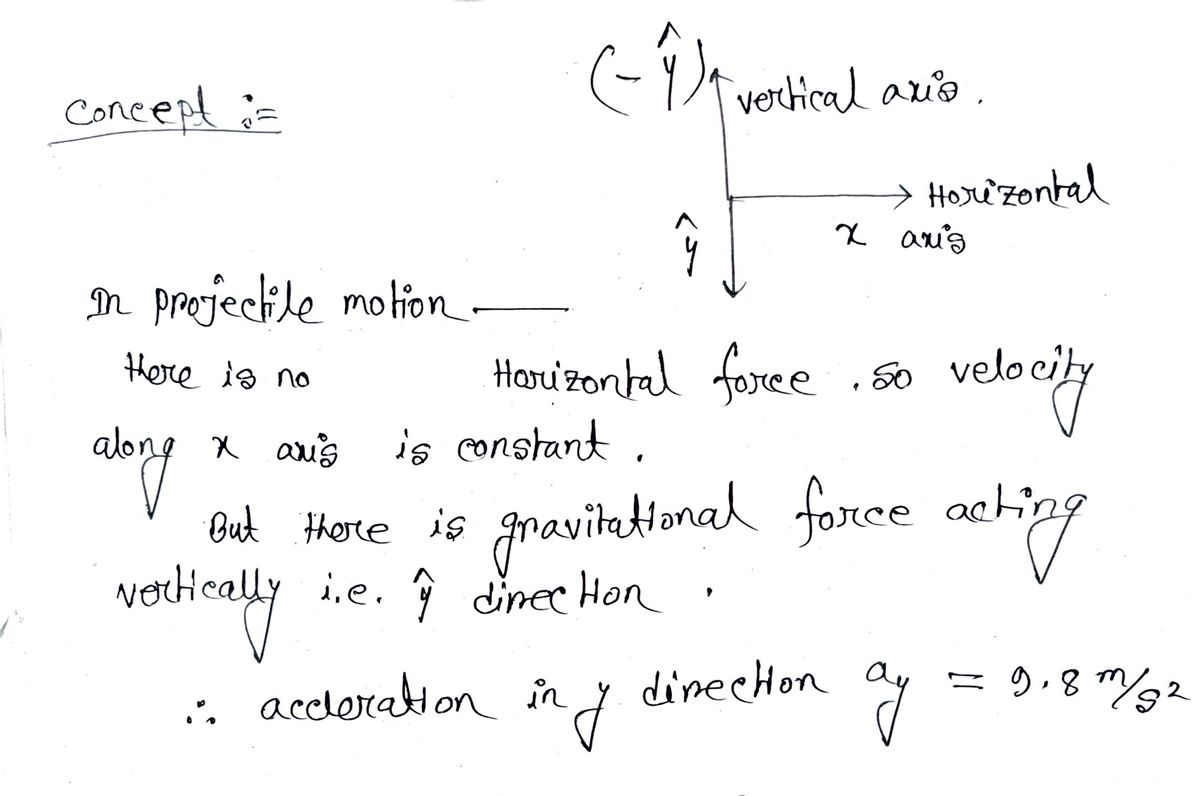 Concept :=
(-ŷ) vertical axis.
Horizontal
x axis
ŷ
In projectile motion —
there is no Horizontal force. so velocity
along x axis is constant.
But there is gravitational force acting
vertically i.e. ŷ direction.
∴ accleration in y direction ay = 9.8 m/s²